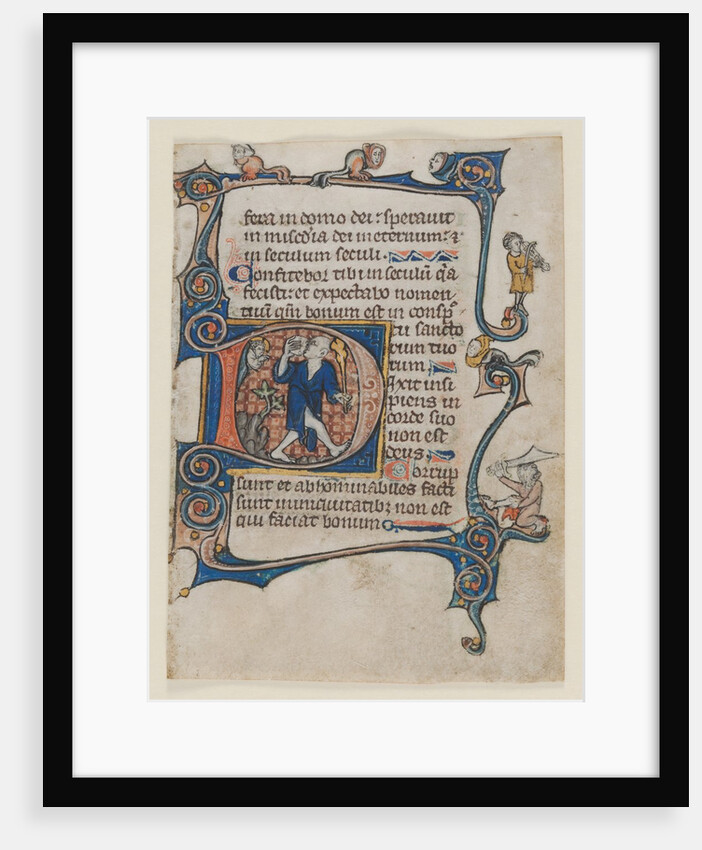 fera in domo dei: speravit
in misc̄dia dei in eternum: ⁊
in seculum seculi.
Confitebor tibi in seculū q̄a
fecisti: et expectabo nomen
tuū qm̄ bonum est in consp̄
tu sancto
rum tuo
rum
Dixit insi
piens in
corde suo
non est
deus.
Corrup
sunt et abhōminabiles facti
sunt in iniquitatibȝ non est
qui faciat bonum